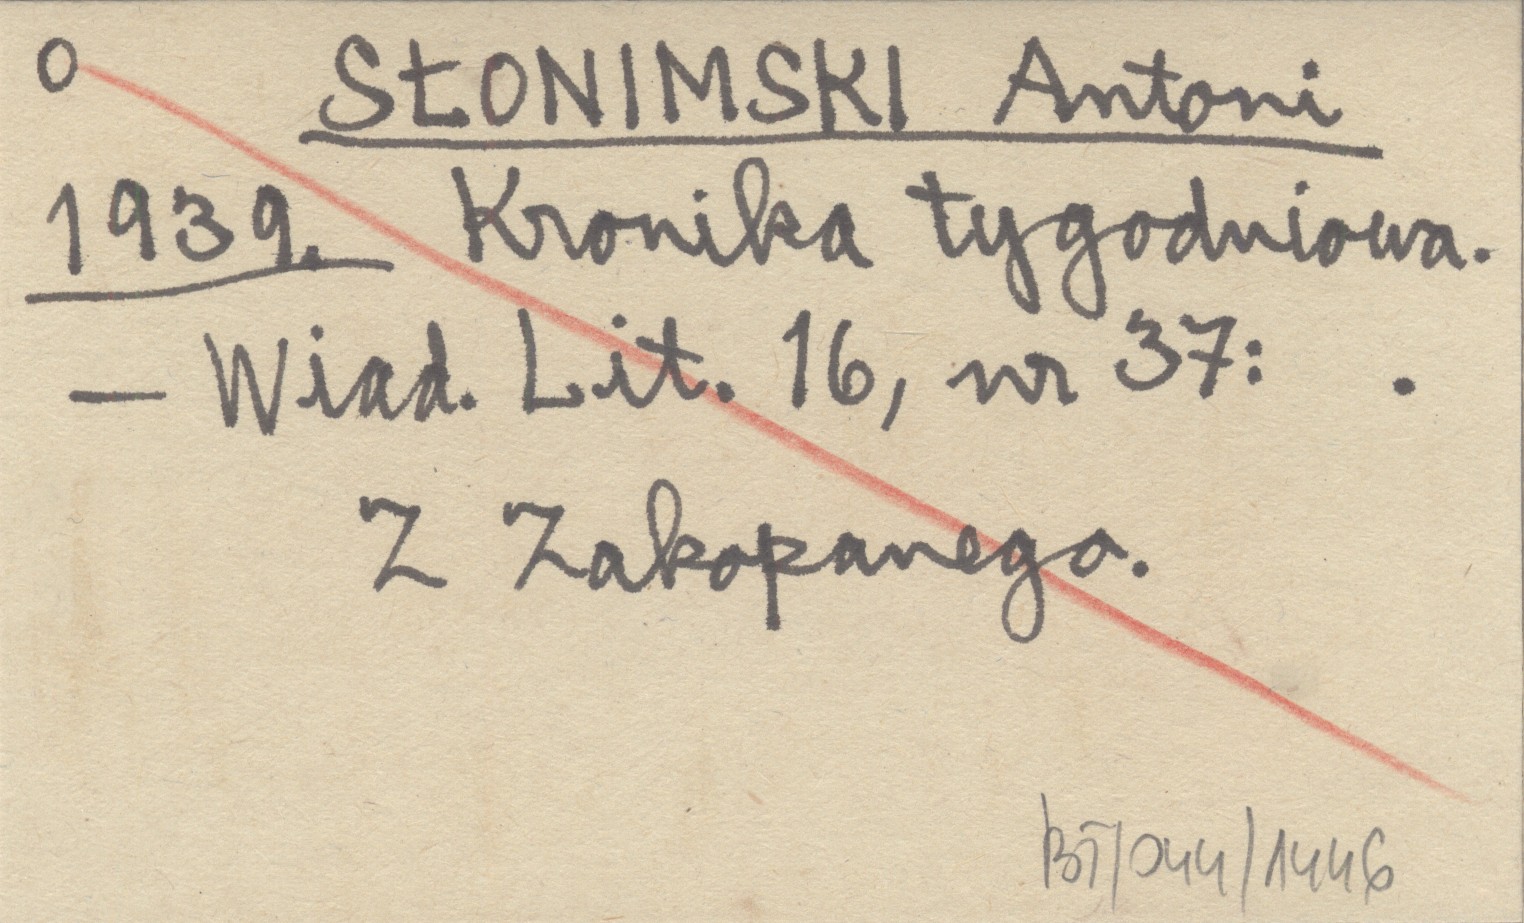 O SŁONIMSKI Antoni
1939. Kronika tygodniowa.
— Wiad. Lit. 16, nr 37: .
Z Zakopanego.
BT/044/1446